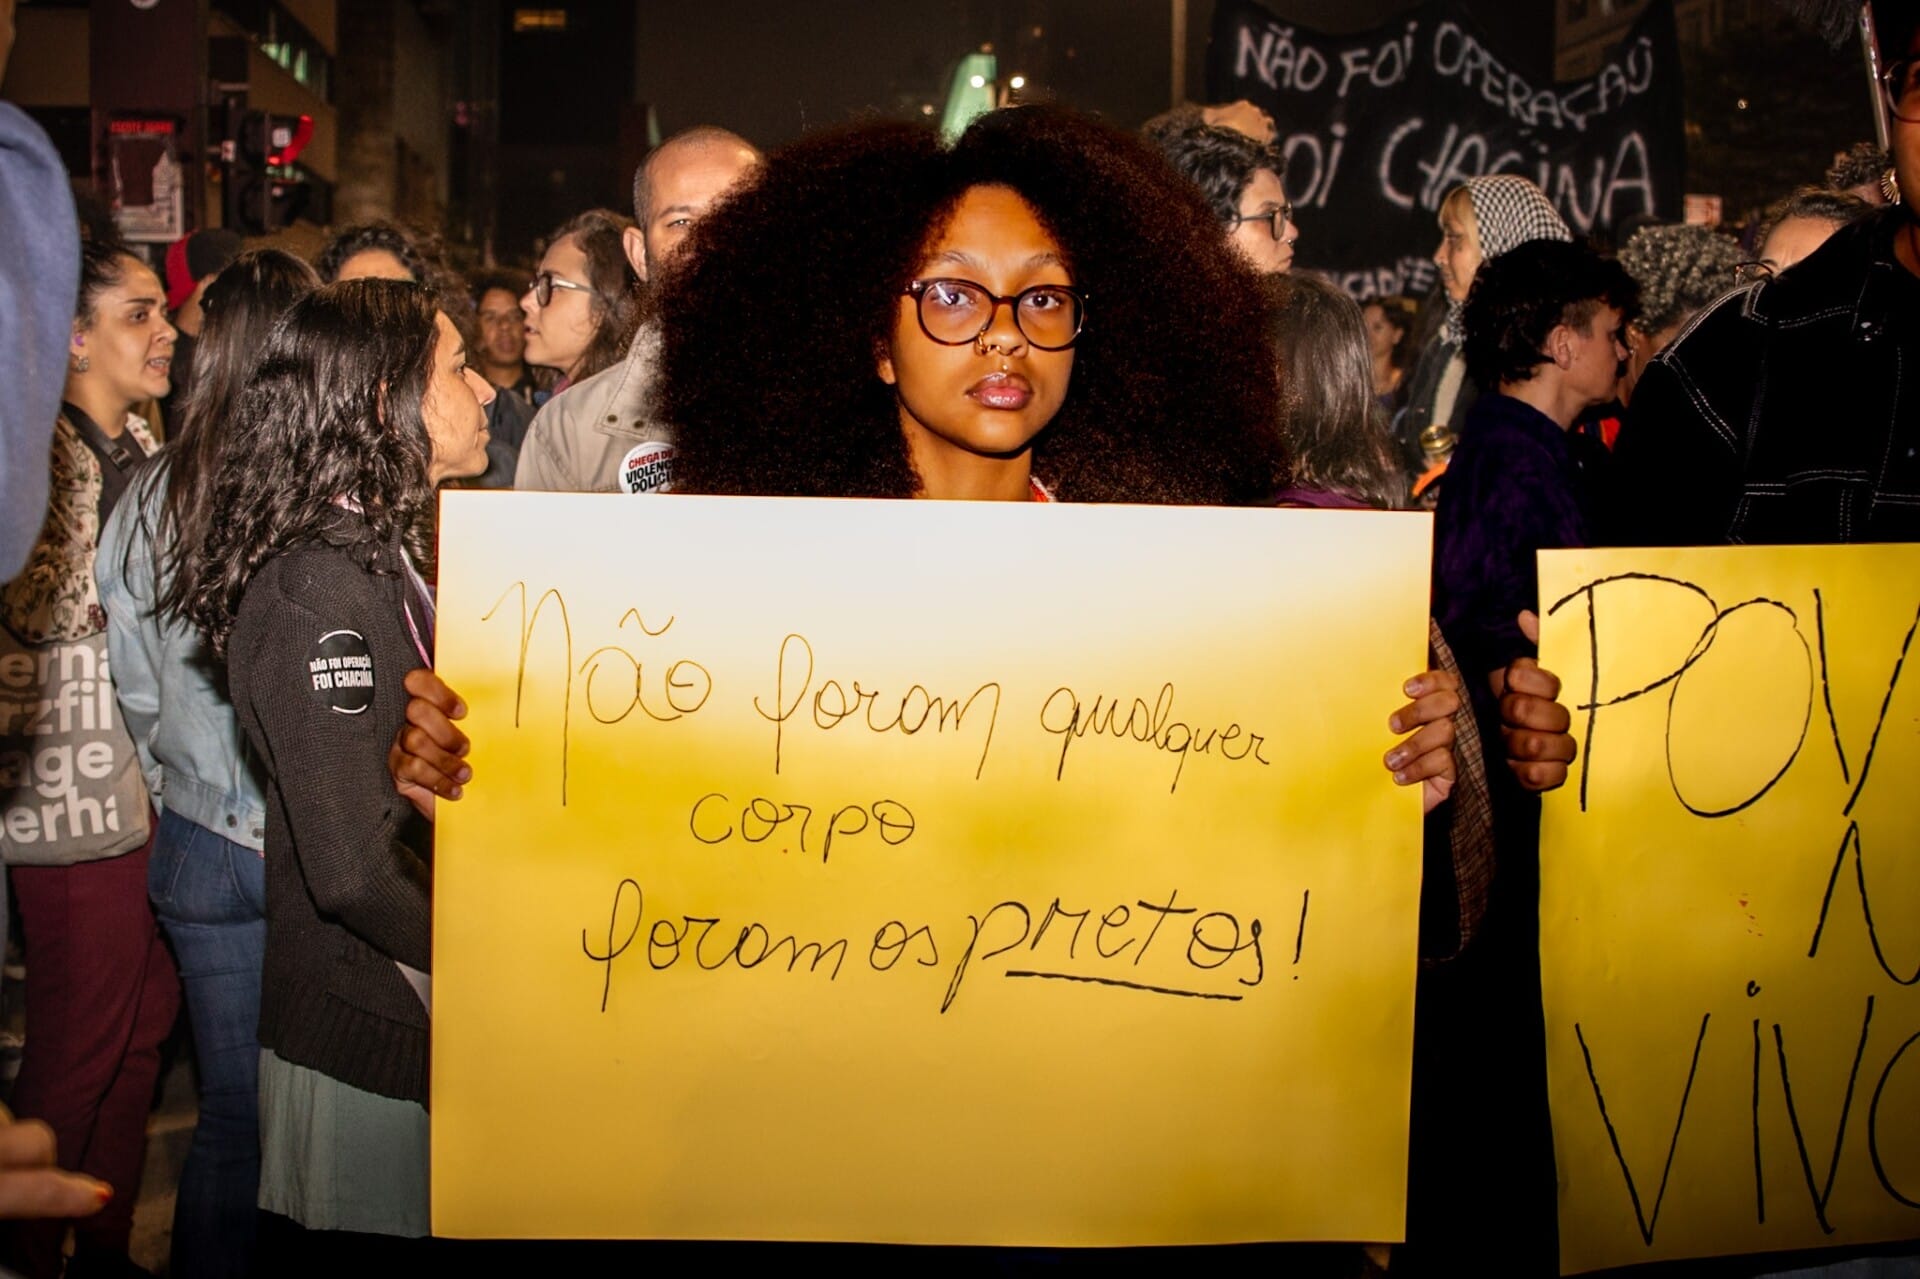 NÃO FOI OPERAÇÃO
FOI CHACINA
CHEGA DE
VIOLÊNC
POLIC
NÃO FOI OPERAÇÃO
FOI CHACINA
erna
rzfil
age
erha
Não foram qualquer
corpo
foram os pretos!
POV
N
VIVO